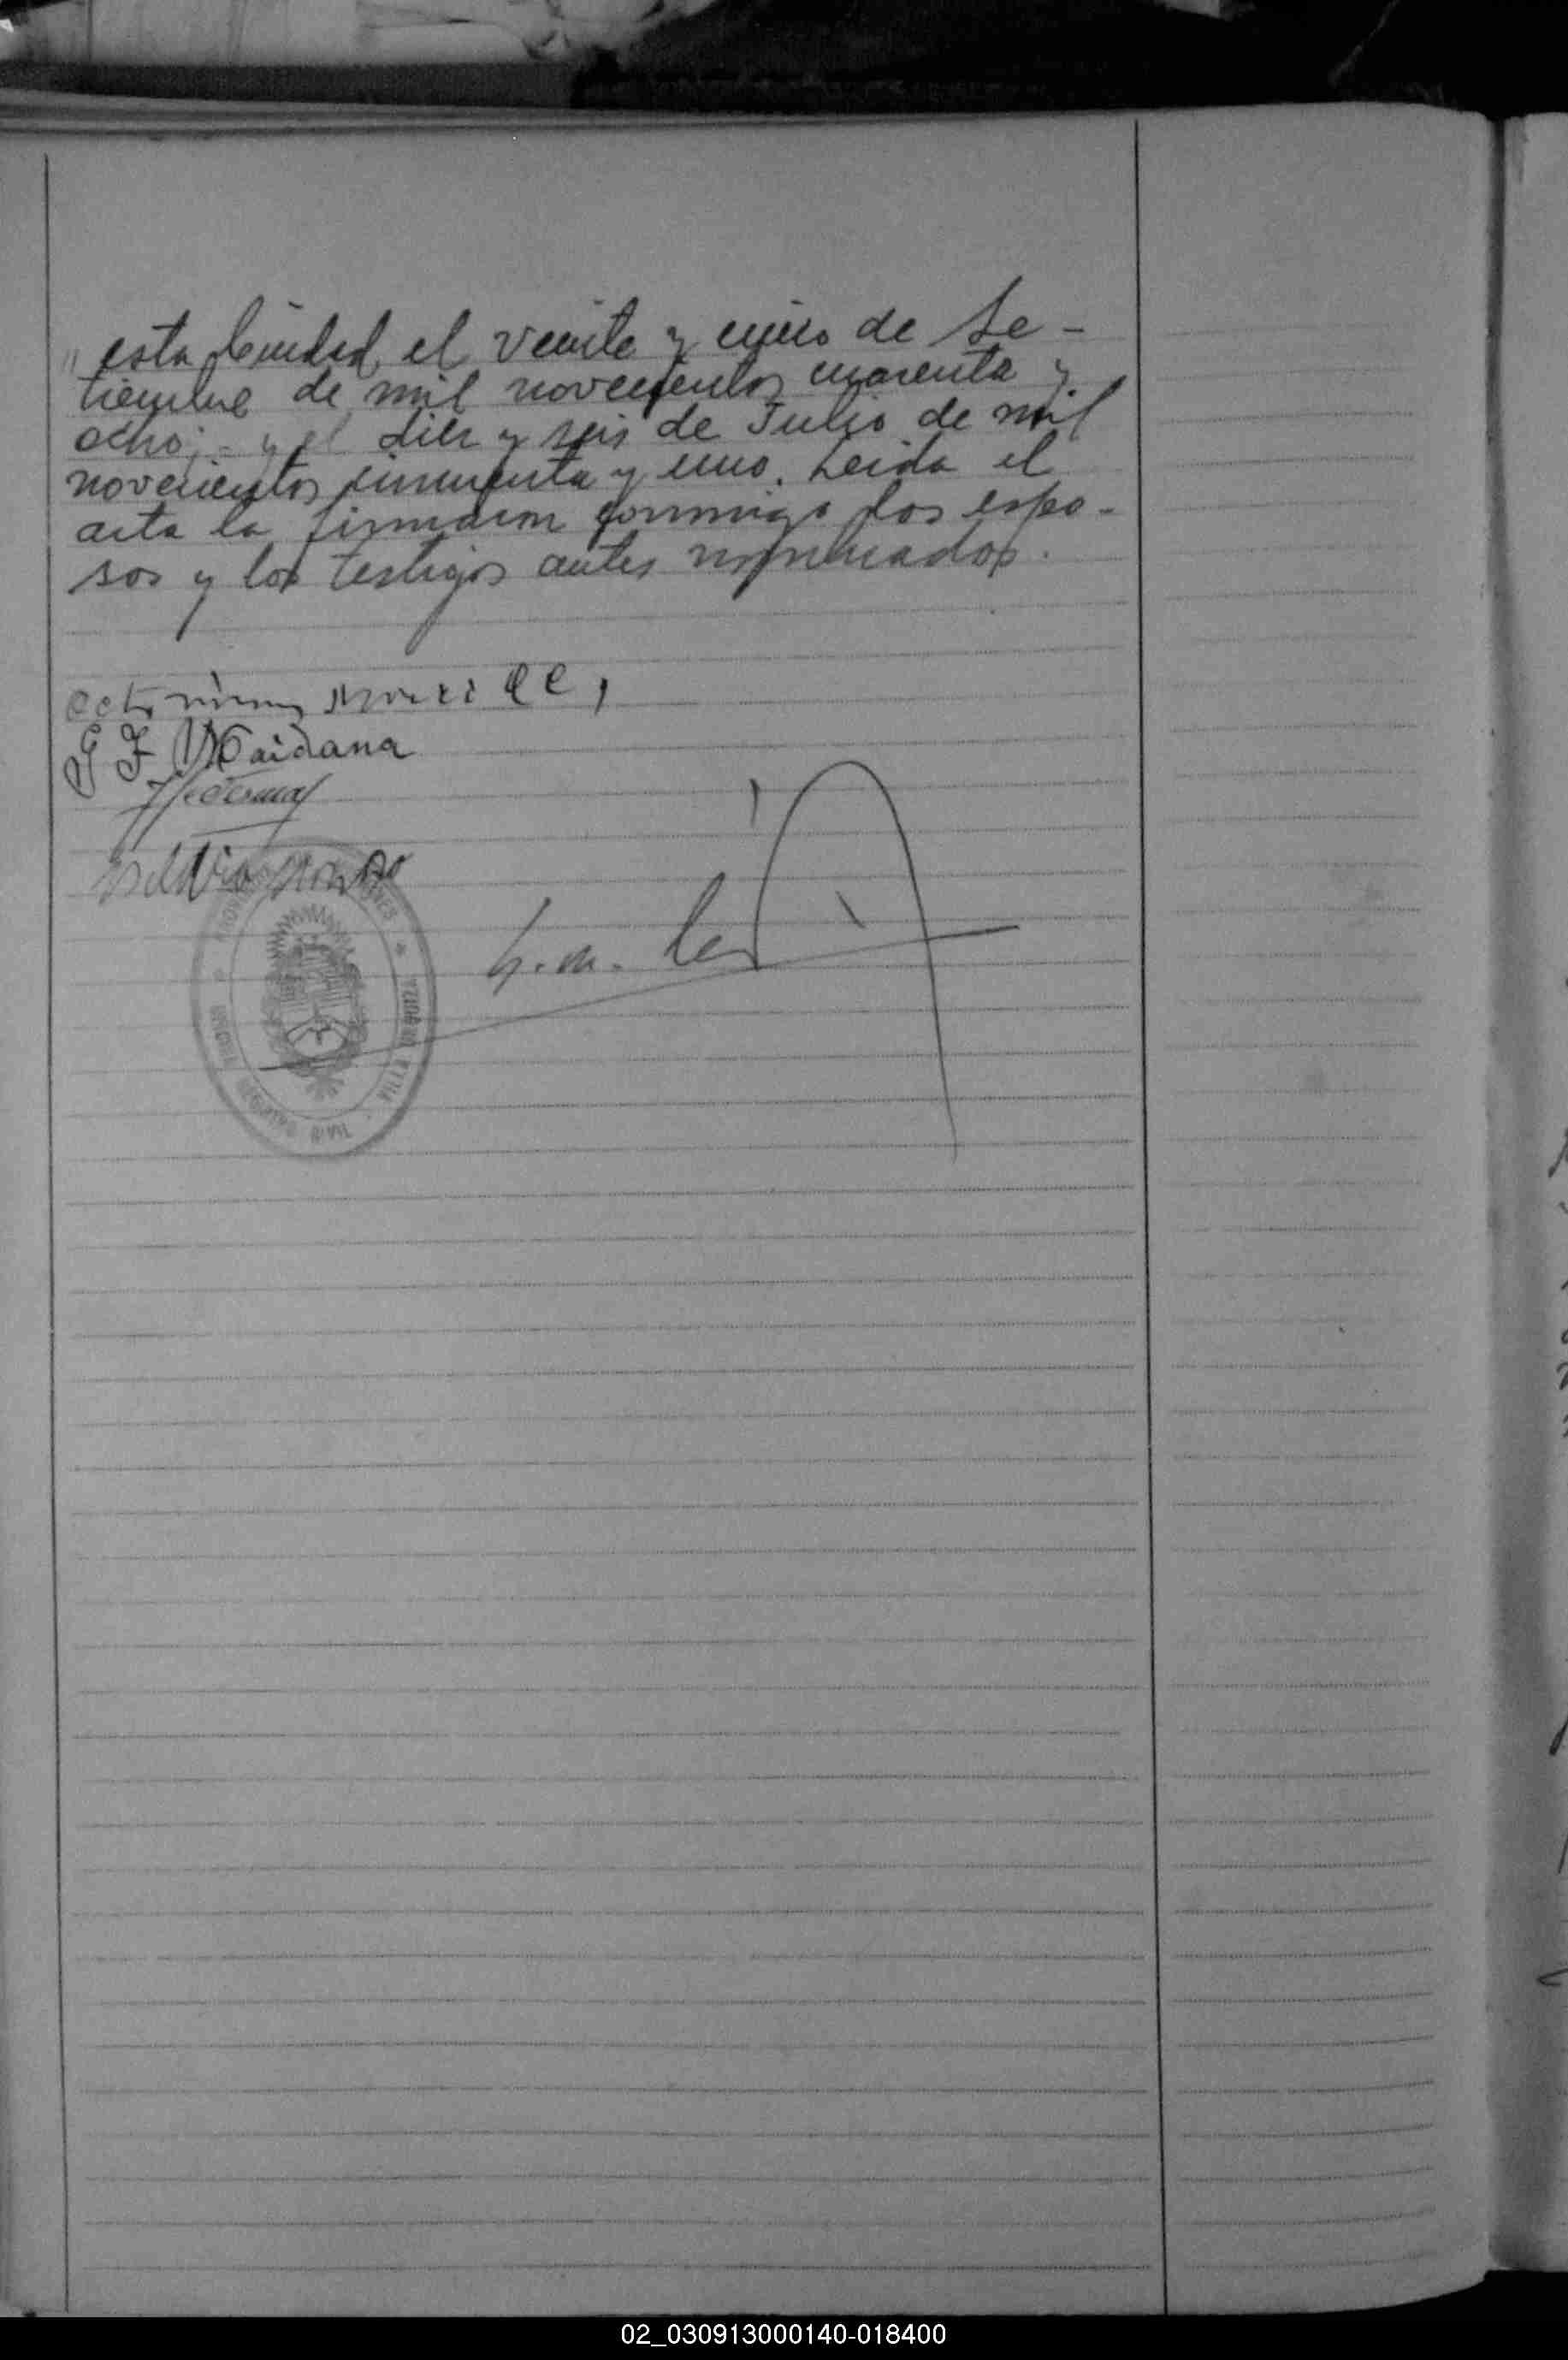 " esta Ciudad, el veinte y cinco de Se-
tiembre de mil novecientos cuarenta y
ocho; - y el diez y seis de Julio de mil
novecientos cincuenta y uno. Leida el
acta la firmaron conmigo los espo-
sos y los testigos antes nombrados.
G F Maidana
02_030913000140-018400